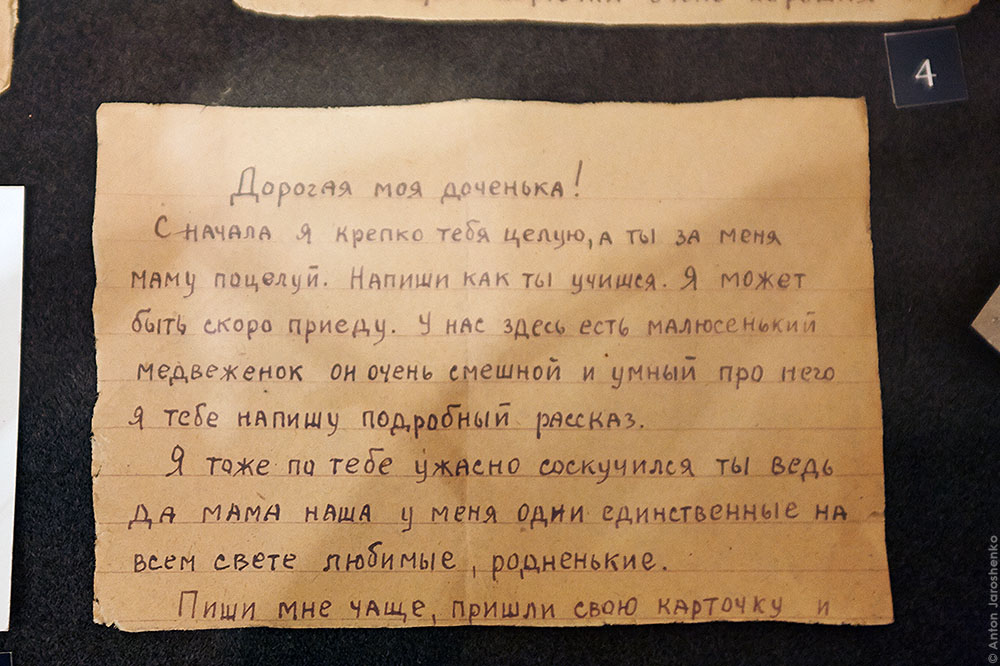 4
Дорогая моя доченька!
С начала я крепко тебя целую, а ты за меня
маму поцелуй. Напиши как ты учишся. Я может
быть скоро приеду. У нас здесь есть малюсенький
медвеженок он очень смешной и умный про него
я тебе напишу подробный рассказ.
Я тоже по тебе ужасно соскучился ты ведь
да мама наша у меня одни единственные на
всем свете любимые, родненькие.
Пиши мне чаще, пришли свою карточку и
© Anton Jaroshenko